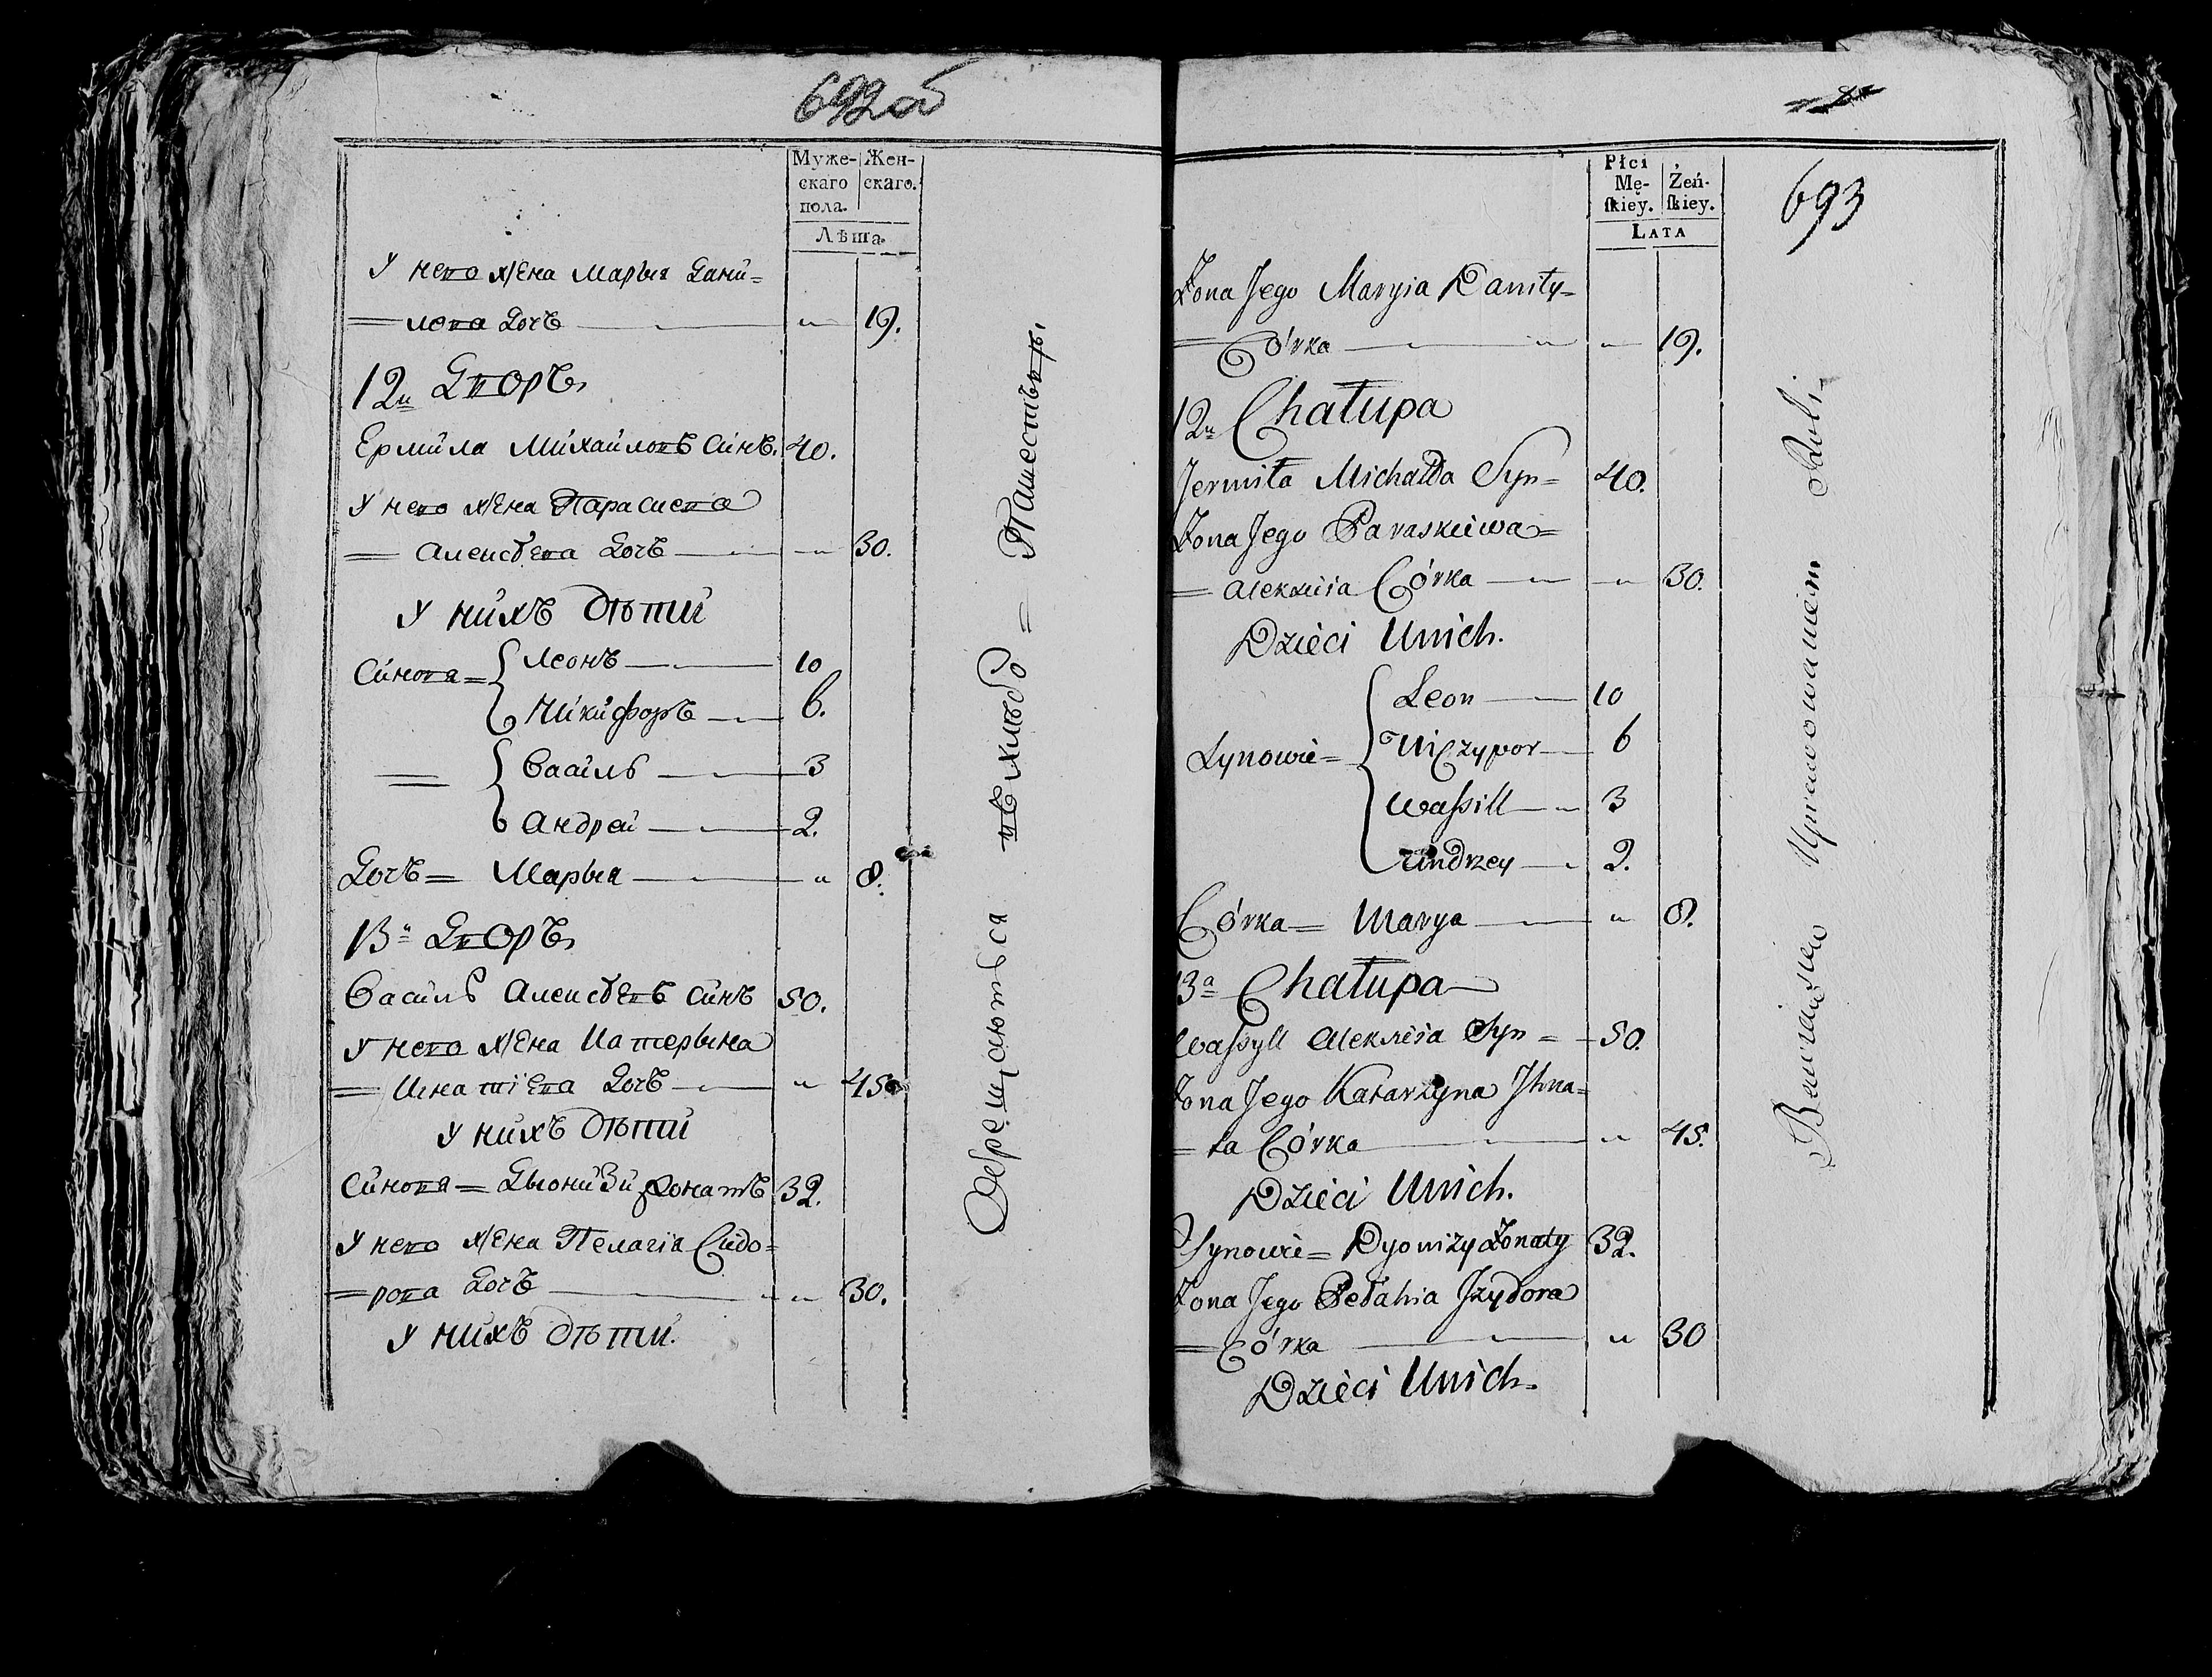 692об
Муже- Жен-
скаго скаго.
пола.
Лѣта.
У него жена Марья Дани=
= лова Дочь — „ 19.
12„ Дворъ
Ермила Михайловъ Синъ. 40.
У него жена Парасцева
= Алексѣева Дочь — „ 30.
У нихъ Дѣти
Синова = Леонъ — 10
Никифоръ — 6.
= Василь — 3
Андрей — 2.
Дочь = Марья — „ 8.
13„ Дворъ
Василь Алексѣевъ Синъ 50.
У него жена Катерына
= Игнатіева Дочь — „ 45
У нихъ Дѣти
Синова = Дыонизи жонатъ 32.
У него жена Пелагіа Сидо=
= рова Дочь — „ 30.
У нихъ Дѣти.
въ хлѣбо = Пашествѣ
693
Płci
Mę- Żeń-
ſkiey. ſkiey.
LATA
Żona Jego Maryia Daniły=
= Córka — „ 19.
12„ Chałupa
Jermiła Michałda Syn = 40.
Żona Jego Paraskiewa =
= Alexieia Córka — „ 30.
Dzieci Unich.
Leon — 10
Synowie = Niczypor — 6
Waſsill — 3
Andrzey — 2.
Córka = Marya — „ 8.
13a Chałupa
Waſsyll Alexieia Syn = 50.
Żona Jego Katarzyna Jhna=
= ta Córka — „ 45.
Dzieci Unich.
Synowie = Dyonizy Żonaty 32.
Żona Jego Pełahia Jzydora
= Córka — „ 30
Dzieci Unich.
Bawiąsie Uprawowaniem Roli